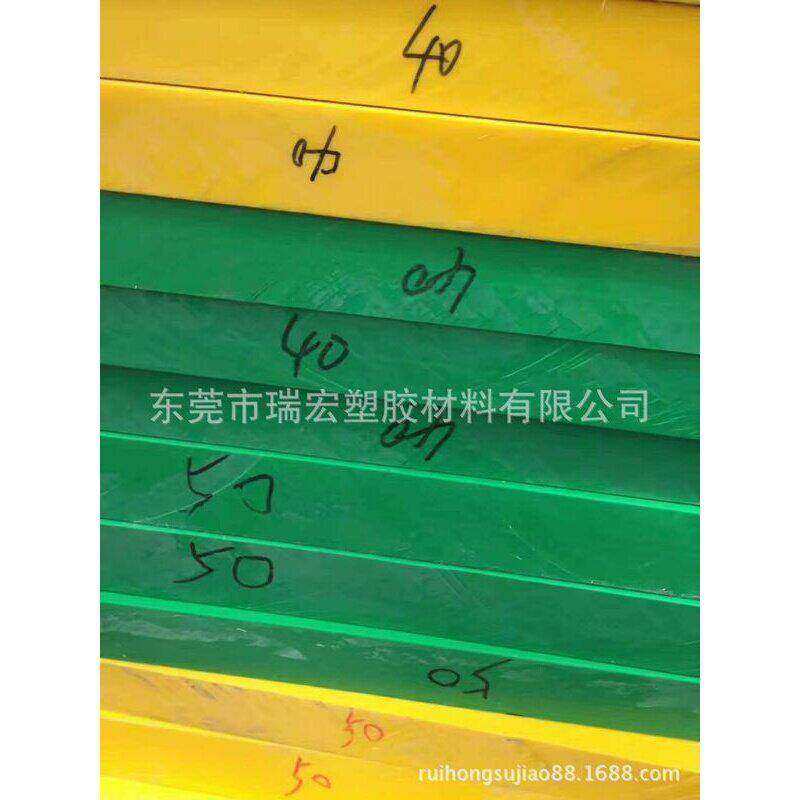 40
40
40
40
东莞市瑞宏塑胶材料有限公司
40
50
50
50
50
50
ruihongsujiao88.1688.com